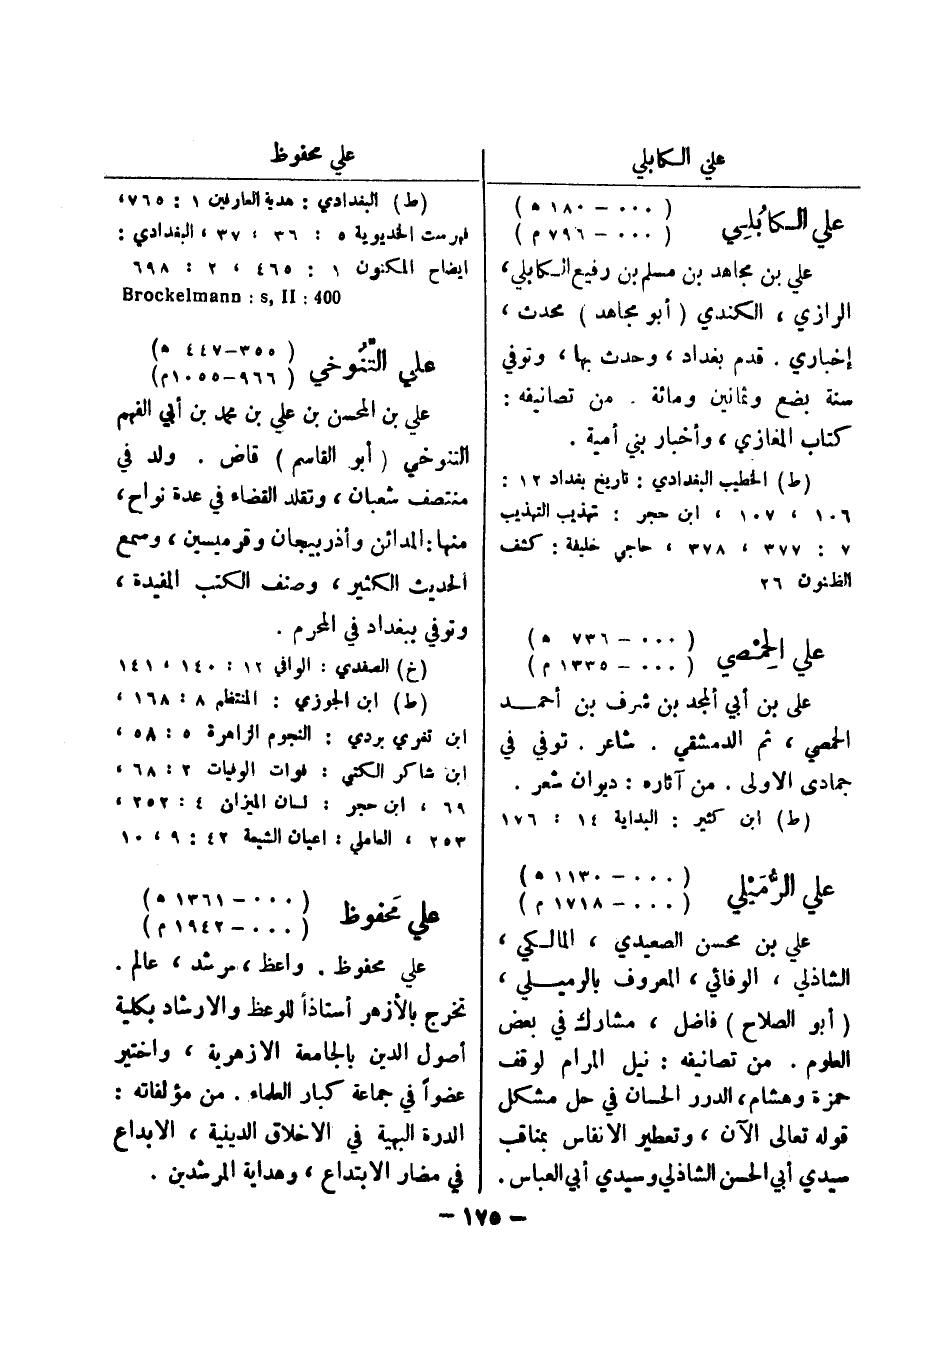 علي الكابلي
علي الكابُلِي
( ٠٠٠ – ١٨٠ ه )
( ٠٠٠ – ٧٩٦ م )
علي بن مجاهد بن مسلم بن رفيع الكابلي،
الرازي ، الكندي ( أبو مجاهد ) محدث ،
إخباري . قدم بغداد ، وحدث بها ، وتوفي
سنة بضع وثمانين ومائة . من تصانيفه :
كتاب المغازي ، وأخبار بني أمية .
(ط) الخطيب البغدادي : تاريخ بغداد ١٢ :
١٠٦ ، ١٠٧ ، ابن حجر : تهذيب التهذيب
٧ : ٣٧٧ ، ٣٧٨ ، حاجي خليفة : كشف
الظنون ٢٦
علي الحِمْصي
( ٠٠٠ – ٧٣٦ ه )
( ٠٠٠ – ١٣٣٥ م )
علي بن أبي المجد بن شرف بن أحمد
الحمصي ، ثم الدمشقي . شاعر . توفي في
جمادى الاولى . من آثاره : ديوان شعر .
(ط) ابن كثير : البداية ١٤ : ١٧٦
علي الرُّمَيْلي
( ٠٠٠ – ١١٣٠ ه )
( ٠٠٠ – ١٧١٨ م )
علي بن محسن الصعيدي ، المالكي ،
الشاذلي ، الوفائي ، المعروف بالرميلي ،
( أبو الصلاح ) فاضل ، مشارك في بعض
العلوم . من تصانيفه : نيل المرام لوقف
حمزة وهشام، الدرر الحسان في حل مشكل
قوله تعالى الآن ، وتعطير الانفاس بمناقب
سيدي أبي الحسن الشاذلي وسيدي أبي العباس .
علي محفوظ
(ط) البغدادي : هدية العارفين ١ : ٧٦٥،
فهرست الخديوية ٥ : ٣٦ ، ٣٧ ، البغدادي :
ايضاح المكنون ١ : ٤٦٥ ، ٢ : ٦٩٨
Brockelmann : s, II : 400
علي التَّنُوخي
( ٣٥٥–٤٤٧ ه )
( ٩٦٦–١٠٥٥م )
علي بن المحسن بن علي بن محمد بن أبي الفهم
التنوخي ( أبو القاسم ) قاض . ولد في
منتصف شعبان ، وتقلد القضاء في عدة نواح،
منها: المدائن وأذربيجان وقرميسين ، وسمع
الحديث الكثير ، وصنف الكتب المفيدة ،
وتوفي ببغداد في المحرم .
(خ) الصفدي : الوافي ١٢ : ١٤٠ ، ١٤١
(ط) ابن الجوزي : المنتظم ٨ : ١٦٨ ،
ابن تغري بردي : النجوم الزاهرة ٥ : ٥٨ ،
ابن شاكر الكتبي : فوات الوفيات ٢ : ٦٨ ،
٦٩ ، ابن حجر : لسان الميزان ٤ : ٢٥٢ ،
٢٥٣ ، العاملي : اعيان الشيعة ٤٢ : ٩ ، ١٠
علي مَحفوظ
( ٠٠٠ – ١٣٦١ ه )
( ٠٠٠ – ١٩٤٢ م )
علي محفوظ . واعظ ، مرشد ، عالم .
تخرج بالأزهر أستاذاً للوعظ والارشاد بكلية
أصول الدين بالجامعة الازهرية ، واختير
عضواً في جماعة كبار العلماء . من مؤلفاته :
الدرة البهية في الاخلاق الدينية ، الابداع
في مضار الابتداع ، وهداية المرشدين .
– ١٧٥ –